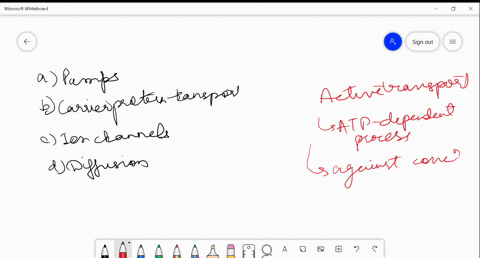 Microsoft Whiteboard
Sign out
a) Pumps
b) Carrier protein transport
c) Ion channels
d) Diffusion
Active transport
↳ ATP-dependent
process
↳ against conc
A